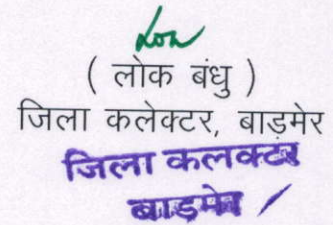 ( लोक बंधु )
जिला कलेक्टर, बाड़मेर
जिला कलक्टर
बाड़मेर